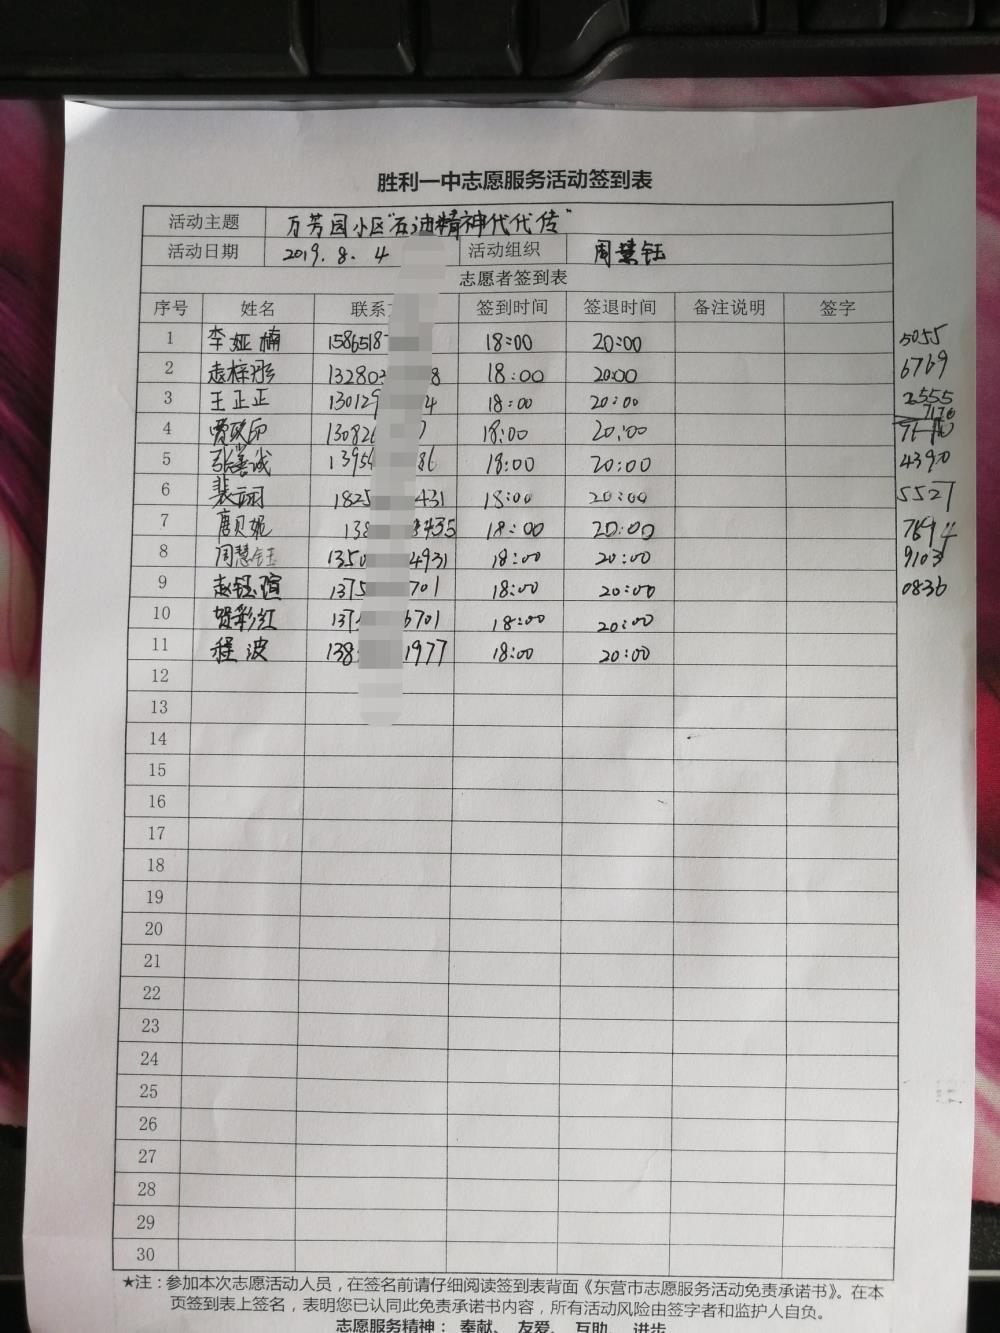 胜利一中志愿服务活动签到表
活动主题 万芳园小区"石油精神代代传"
活动日期 2019.8.4 活动组织 周慧钰
志愿者签到表
序号 姓名 联系 签到时间 签退时间 备注说明 签字
1 李娅楠 1586518 18:00 20:00 5055
2 赵梓彤 13280 8 18:00 20:00 6769
3 王正正 13012 4 18:00 20:00 2555
7176
4 贾 13082 18:00 20:00
5 张善诚 1395 86 18:00 20:00 4390
6 裴 1825 431 18:00 20:00 5527
7 唐贝妮 138 435 18:00 20:00 7694
8 周慧钰 1350 4931 18:00 20:00 9103
9 赵钰瑄 1375 701 18:00 20:00 0836
10 贺彩红 137 6701 18:00 20:00
11 程波 138 1977 18:00 20:00
12
13
14
15
16
17
18
19
20
21
22
23
24
25
26
27
28
29
30
★注：参加本次志愿活动人员，在签名前请仔细阅读签到表背面《东营市志愿服务活动免责承诺书》。在本
页签到表上签名，表明您已认同此免责承诺书内容，所有活动风险由签字者和监护人自负。
志愿服务精神：奉献、友爱、互助、进步